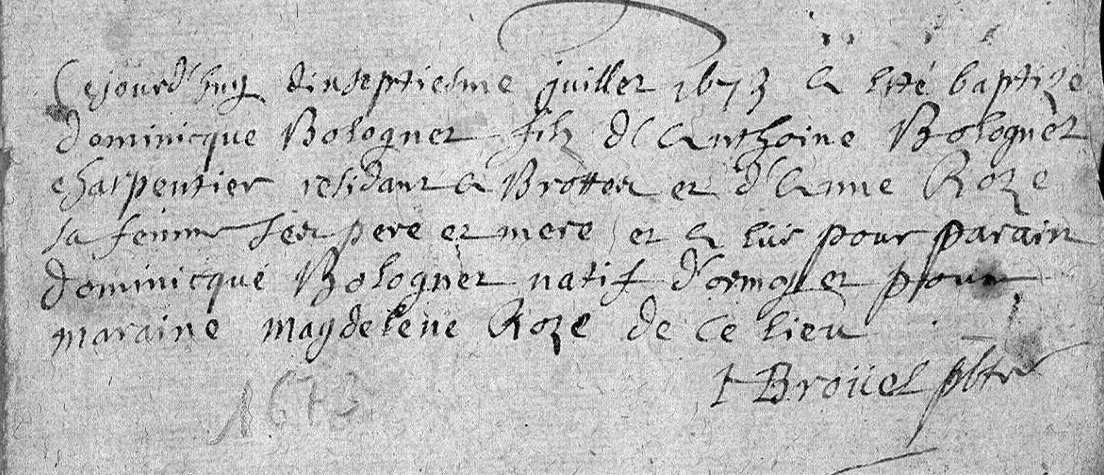 Cejourd'huy dixseptiesme juillet 1673 a esté baptizé
dominicque Bologner filz d'Anthoine Bologner
charpentier residant a Brottes et d'Anne Roze
sa femme ses pere et mere et a eu pour parain
dominicque Bologner natif d'ormoy et pour
maraine magdelene Roze de ce lieu
Broüet pbtre
1673